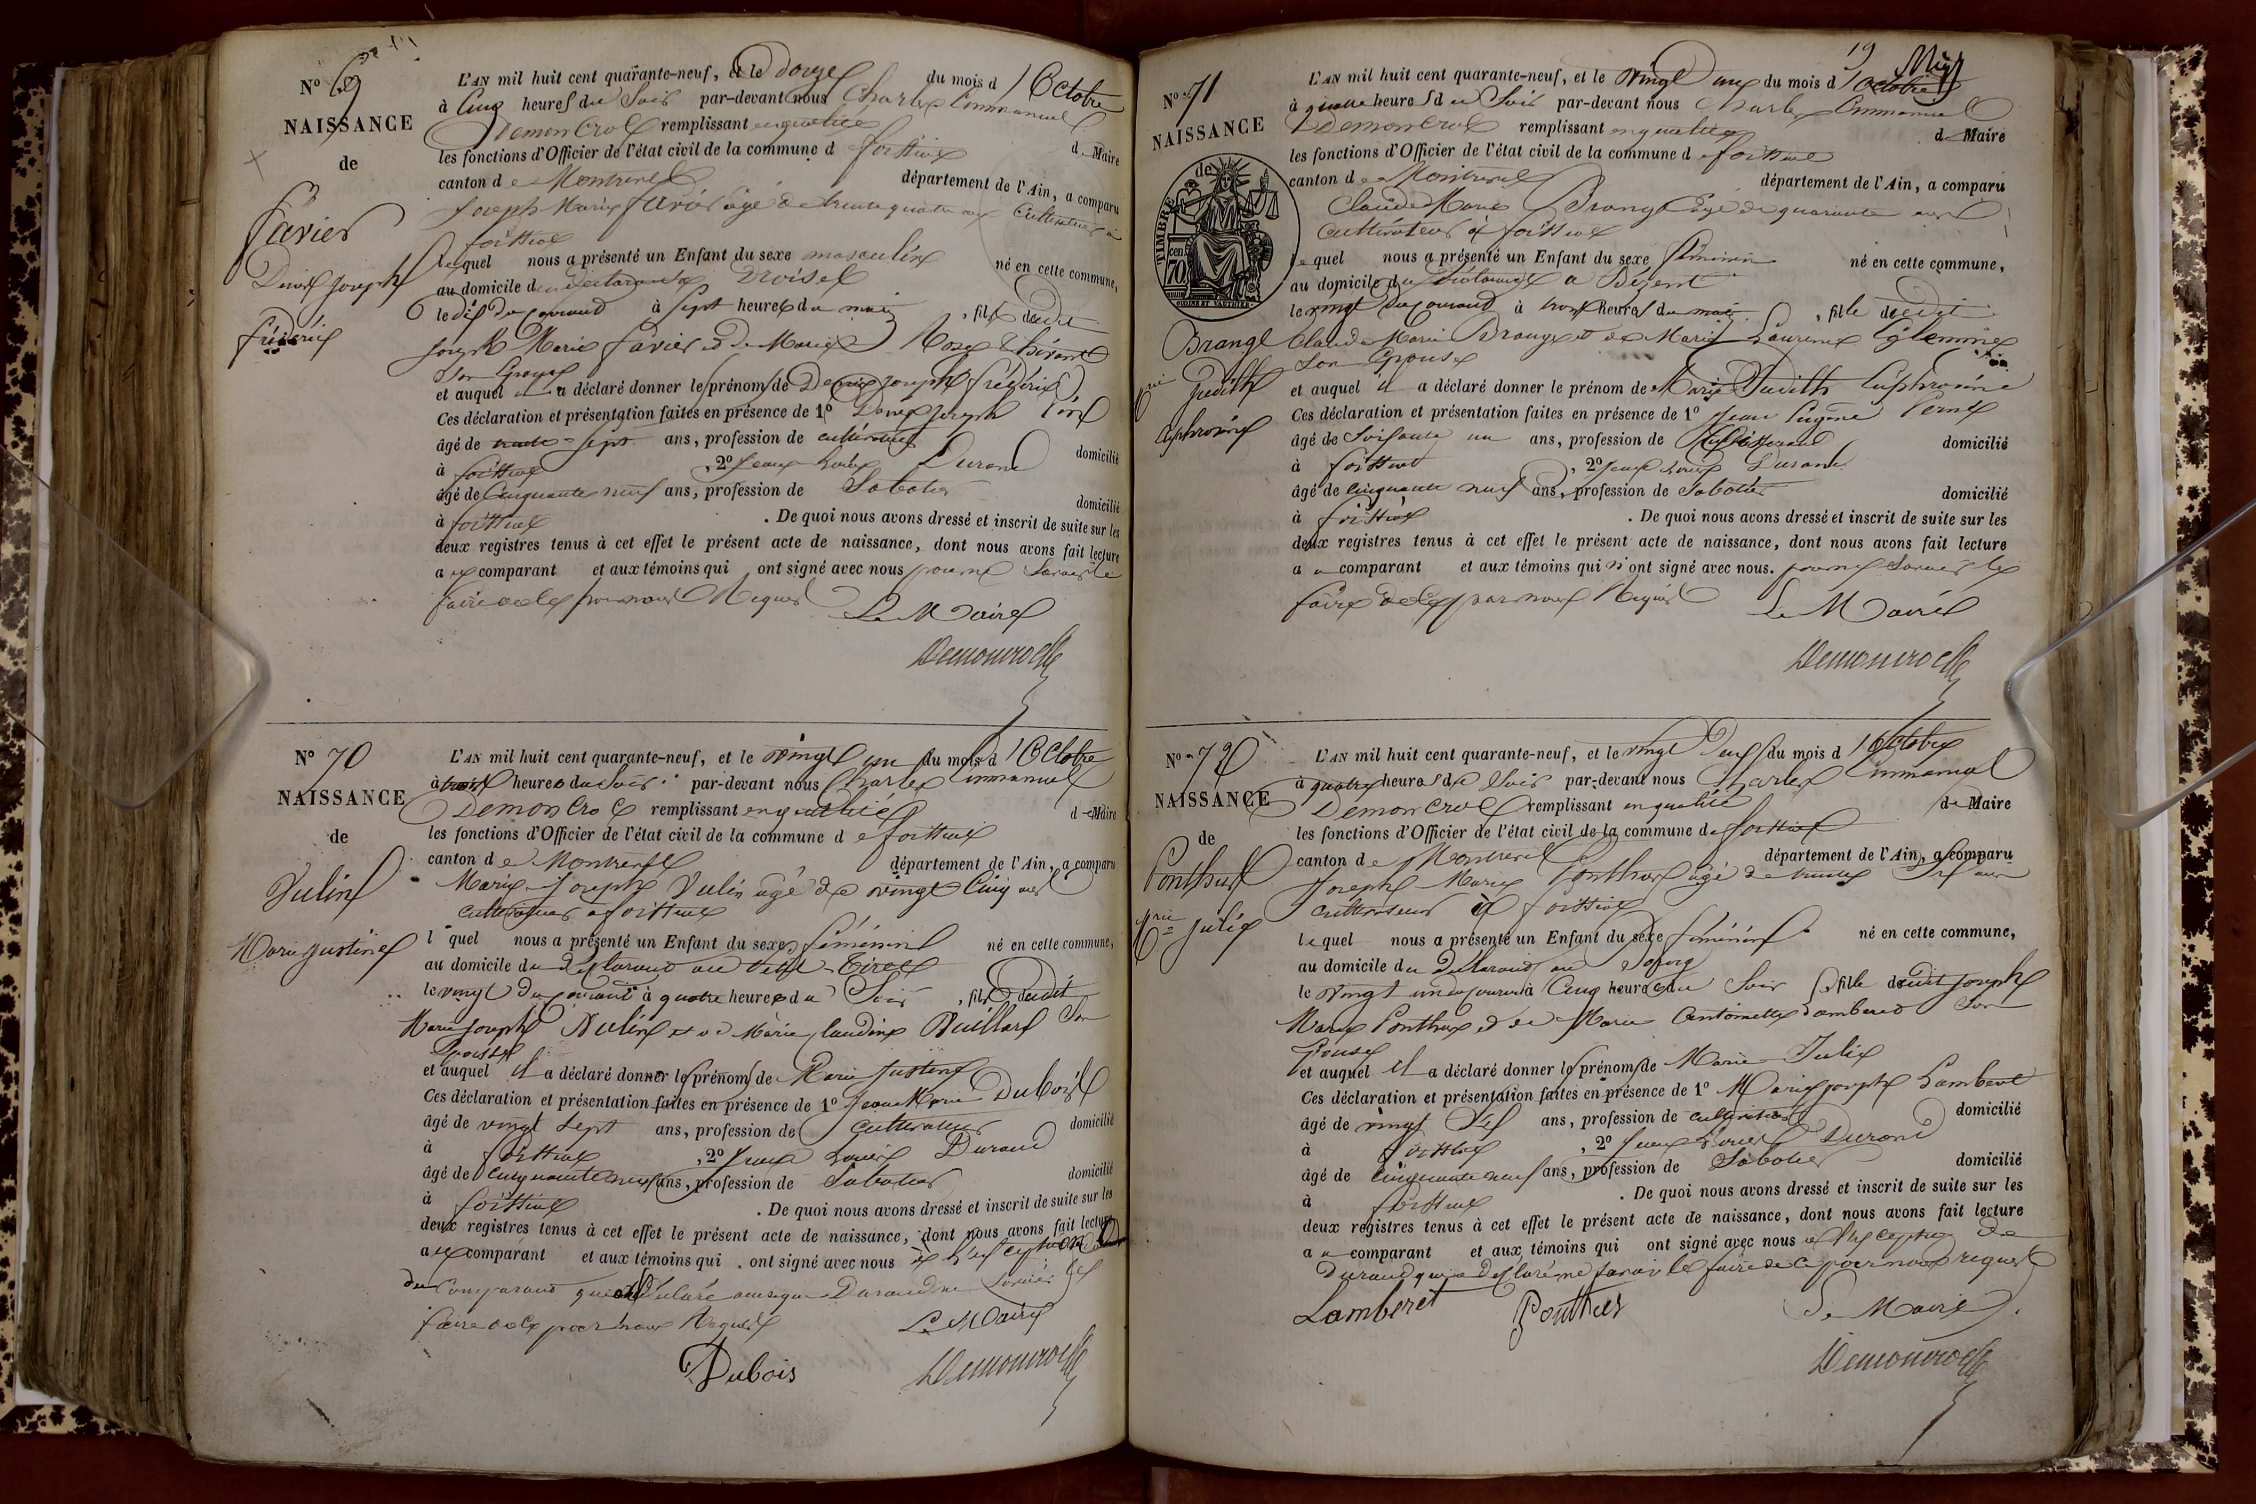 N° 69
NAISSANCE
de
Favier
Denis Joseph
Frédéric
L'AN mil huit cent quarante-neuf, et le douze du mois d'Octobre
à Cinq heures du Soir par-devant nous Charles Emmanuel
Demoncroc remplissant en qualité d Maire
les fonctions d'Officier de l'état civil de la commune de foissiat
canton de Montrevel département de l'Ain, a comparu
Joseph Marie favier âgé de trente quatre ans Cultivateur à
foissiat
lequel nous a présenté un Enfant du sexe masculin né en cette commune,
au domicile du déclarant
le dix du courant à Sept heures du matin, fils dudit
Joseph Marie favier et de Marie
Son Epouse
et auquel il a déclaré donner les prénoms de Denis Joseph frédéric
Ces déclaration et présentation faites en présence de 1° Denis Joseph
âgé de trente-sept ans, profession de cultivateur domicilié
à foissiat, 2° Jean Louis Durand
âgé de Cinquante neuf ans, profession de Sabotier domicilié
à foissiat. De quoi nous avons dressé et inscrit de suite sur les
deux registres tenus à cet effet le présent acte de naissance, dont nous avons fait lecture
aux comparant et aux témoins qui ont signé avec nous pour ne Savoir le
faire de ce par nous Requis Le Maire
Demoncroc
N° 70
NAISSANCE
de
Vulin
Marie Justine
L'AN mil huit cent quarante-neuf, et le vingt un du mois d'Octobre
à trois heures du Soir par-devant nous Charles Emmanuel
Demoncroc remplissant en qualité de Maire
les fonctions d'Officier de l'état civil de la commune de foissiat
canton de Montrevel département de l'Ain, a comparu
Marie Joseph Vulin âgé de vingt Cinq ans
cultivateur à foissiat
lequel nous a présenté un Enfant du sexe féminin né en cette commune,
au domicile du déclarant au
le vingt du courant à quatre heures du Soir, fils dudit
Marie Joseph Vulin et de Marie Claudine Vuillard Son
Epouse
et auquel il a déclaré donner les prénoms de Marie Justine
Ces déclaration et présentation faites en présence de 1° Jean Marie Dubois
âgé de vingt Sept ans, profession de Cultivateur domicilié
à foissiat, 2° Jean Louis Durand
âgé de Cinquante neuf ans, profession de Sabotier domicilié
à foissiat. De quoi nous avons dressé et inscrit de suite sur les
deux registres tenus à cet effet le présent acte de naissance, dont nous avons fait lecture
aux comparant et aux témoins qui ont signé avec nous à l'exception
du Comparant qui a déclaré ainsi que Durand ne Savoir le
faire de ce par nous Requis Le Maire
Dubois Demoncroc
19
N° 71
NAISSANCE
de
TIMBRE
cen
70
Brange
Mrie Judith
Euphrosine
L'AN mil huit cent quarante-neuf, et le vingt deux du mois d'octobre
à quatre heures du Soir par-devant nous Charles Emmanuel
Demoncroc remplissant en qualité de Maire
les fonctions d'Officier de l'état civil de la commune de foissiat
canton de Montrevel département de l'Ain, a comparu
Claude Marie Brange âgé de quarante ans
Cultivateur à foissiat
lequel nous a présenté un Enfant du sexe féminin né en cette commune,
au domicile du déclarant à Bézent
le vingt du courant à trois heures du matin, fille dudit
Claude Marie Brange et de Marie Laurence
Son Epouse
et auquel il a déclaré donner le prénom de Marie Judith Euphrosine
Ces déclaration et présentation faites en présence de 1° Jean Eugène
âgé de Soixante un ans, profession de domicilié
à foissiat, 2° Jean Louis Durand
âgé de Cinquante neuf ans, profession de Sabotier domicilié
à foissiat. De quoi nous avons dressé et inscrit de suite sur les
deux registres tenus à cet effet le présent acte de naissance, dont nous avons fait lecture
au comparant et aux témoins qui n'ont signé avec nous. pour ne Savoir le
faire de ce par nous Requis Le Maire
Demoncroc
N° 72
NAISSANCE
de
Ponthus
Mrie Julie
L'AN mil huit cent quarante-neuf, et le vingt Deux du mois d'Octobre
à quatre heures du Soir par-devant nous Charles Emmanuel
Demoncroc remplissant en qualité de Maire
les fonctions d'Officier de l'état civil de la commune de foissiat
canton de Montrevel département de l'Ain, a comparu
Joseph Marie Ponthus âgé de trente Six ans
cultivateur à foissiat
lequel nous a présenté un Enfant du sexe féminin né en cette commune,
au domicile du déclarant au
le vingt un du courant à Cinq heures du Soir, fille dudit Joseph
Marie Ponthus et de Marie Antoinette Son
Epouse
et auquel il a déclaré donner les prénoms de Marie Julie
Ces déclaration et présentation faites en présence de 1° Marie Joseph Lamberet
âgé de vingt Six ans, profession de cultivateur domicilié
à foissiat, 2° Jean Louis Durand
âgé de Cinquante neuf ans, profession de Sabotier domicilié
à foissiat. De quoi nous avons dressé et inscrit de suite sur les
deux registres tenus à cet effet le présent acte de naissance, dont nous avons fait lecture
au comparant et aux témoins qui ont signé avec nous à l'exception de
Durand qui a déclaré ne Savoir le faire de ce par nous requis
Lamberet Ponthus Le Maire
Demoncroc